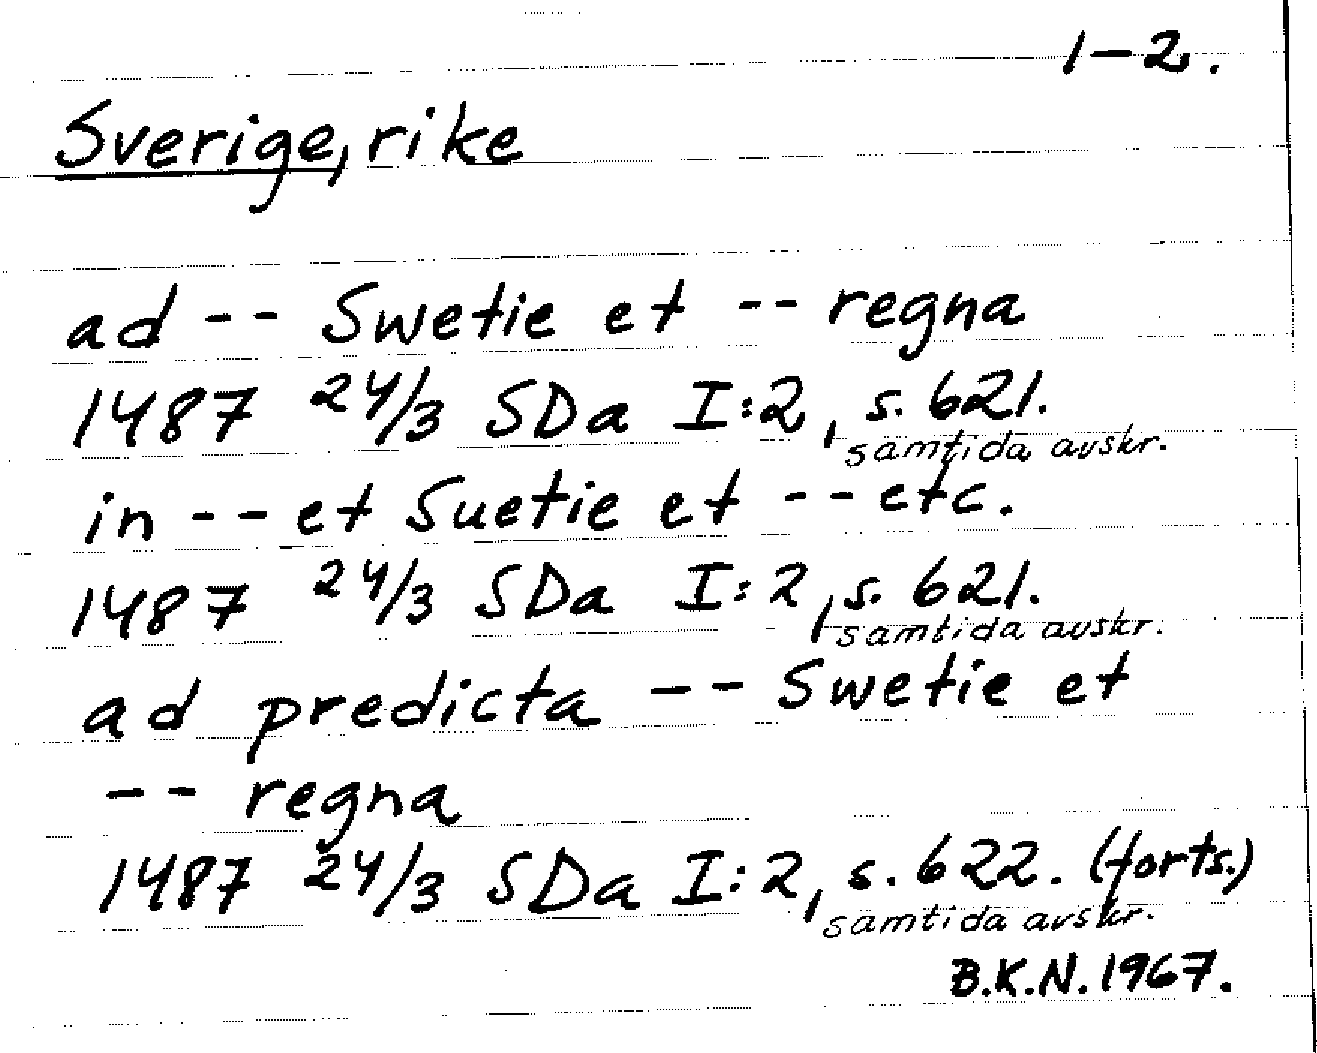 1-2.
Sverige, rike
ad -- Swetie et -- regna
1487 24/3 SDa I:2, s. 621.
samtida avskr.
in -- et Suetie et -- etc.
1487 24/3 SDa I:2, s. 621.
samtida avskr.
ad predicta -- Swetie et
-- regna
1487 24/3 SDa I:2, s. 622. (forts.)
samtida avskr.
B.K.N. 1967.